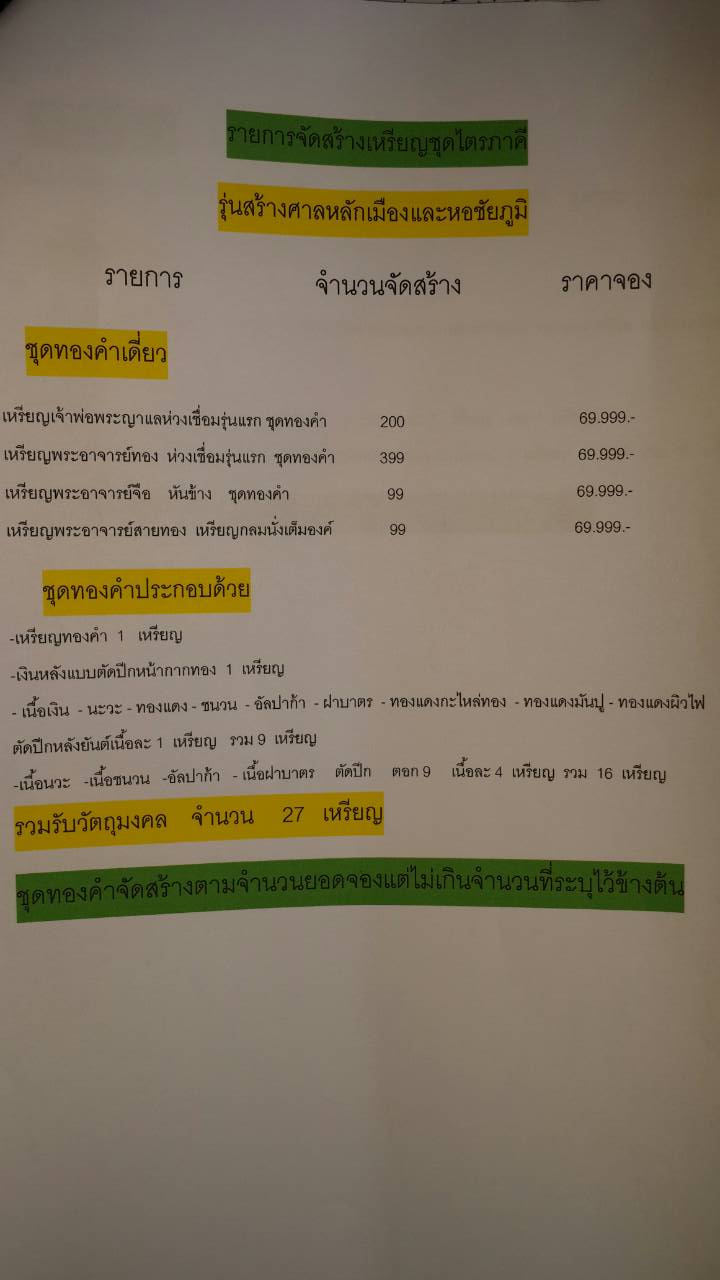 รายการจัดสร้างเหรียญชุดไตรภาคี
รุ่นสร้างศาลหลักเมืองและหอชัยภูมิ
รายการ จำนวนจัดสร้าง ราคาจอง
ชุดทองคำเดี่ยว
เหรียญเจ้าพ่อพระญาแลห่วงเชื่อมรุ่นแรก ชุดทองคำ 200 69.999.-
เหรียญพระอาจารย์ทอง ห่วงเชื่อมรุ่นแรก ชุดทองคำ 399 69.999.-
เหรียญพระอาจารย์จือ หันข้าง ชุดทองคำ 99 69.999.-
เหรียญพระอาจารย์สายทอง เหรียญกลมนั่งเต็มองค์ 99 69.999.-
ชุดทองคำประกอบด้วย
-เหรียญทองคำ 1 เหรียญ
-เงินหลังแบบตัดปีกหน้ากากทอง 1 เหรียญ
- เนื้อเงิน - นะวะ - ทองแดง - ชนวน - อัลปาก้า - ฝาบาตร - ทองแดงกะไหล่ทอง - ทองแดงมันปู - ทองแดงผิวไฟ
ตัดปีกหลังยันต์เนื้อละ 1 เหรียญ รวม 9 เหรียญ
-เนื้อนวะ -เนื้อชนวน -อัลปาก้า - เนื้อฝาบาตร ตัดปีก ตอก 9 เนื้อละ 4 เหรียญ รวม 16 เหรียญ
รวมรับวัตถุมงคล จำนวน 27 เหรียญ
ชุดทองคำจัดสร้างตามจำนวนยอดจองแต่ไม่เกินจำนวนที่ระบุไว้ข้างต้น